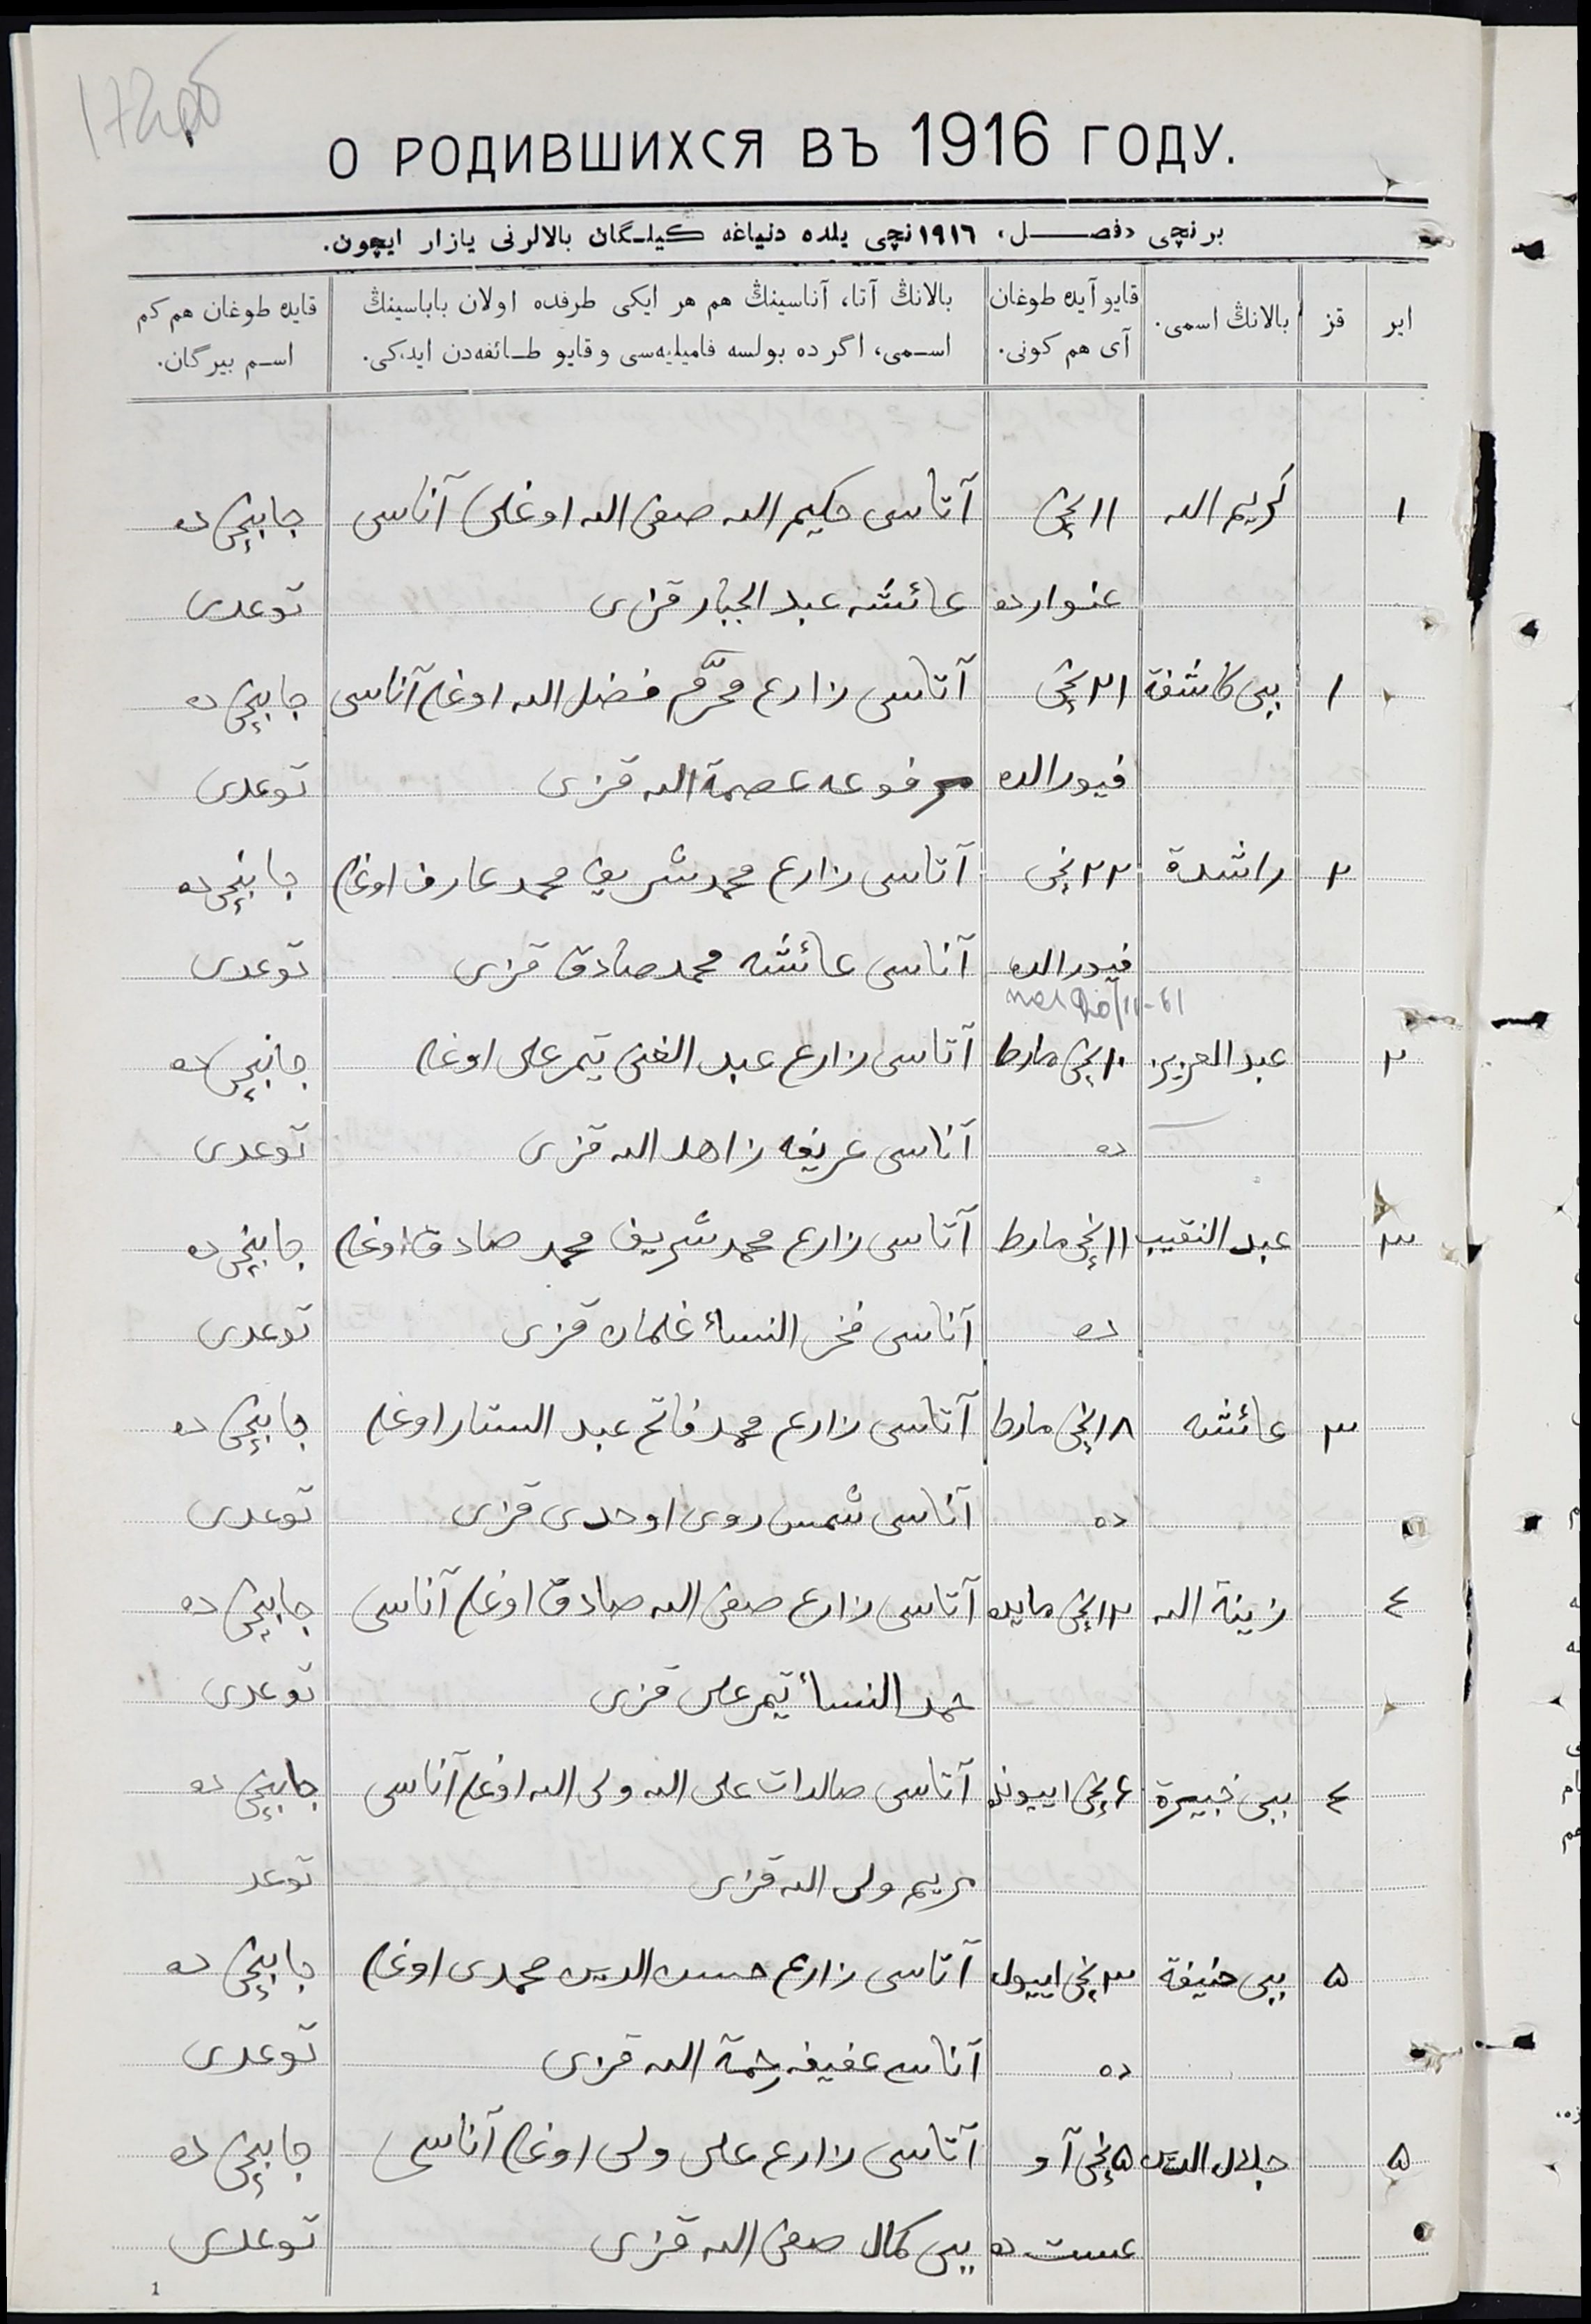 172об
О РОДИВШИХСЯ ВЪ 1916 ГОДУ.
برنچی «فصل» ١٩١٦نچی یلده دنیاغه کیلـگان بالالرنی یازار ایچون.
ایر
قز
بالانڭ اسمی.
قایو آیده طوغان
آی هم کونی.
بالانڭ آتا، آناسینڭ هم هر ایکی طرفده اولان باباسینڭ
اسـمی، اگر ده بولسه فامیلیه‌سی و قایو طـائفه‌دن ایدکی.
قایده طوغان هم کم
اسـم بیرگان.
١ کریم الله ١١نچی آتاسی حکیم الله صفی الله اوغلی آناسی
غنوارده عائشه عبد الجبار قزی توعدی
١ بیبی کاشفة ٢١نچی آتاسی زارع محرّم فضل الله اوغلی آناسی
فیورالده مرفوعه عصمة الله قزی توعدی
٢ راشدة ٢٢نچی آتاسی زارع محمد شریف محمد عارف اوغلی
فیورالده آناسی عائشه محمد صادق قزی توعدی
٢ عبد العزیز ١٠نچی مارط آتاسی زارع عبد الغنی تیمرعلی اوغلی
ده آناسی عریفه زاهد الله قزی توعدی
٣ عبد النقیب ١١نچی مارط آتاسی زارع محمد شریف محمد صادق اوغلی
ده آناسی فخر النساء غلمان قزی توعدی
٣ عائشه ١٨نچی مارط آتاسی زارع محمد فاتح عبد الستار اوغلی
ده آناسی شمس روی اوحدی قزی توعدی
٤ زینة الله ١٢نچی مایده آتاسی زارع صفی الله صادق اوغلی آناسی
حمد النساء تیمرعلی قزی توعدی
٤ بیبی خبیرة ٤نچی اییونده آتاسی صالدات علی الله ولی الله اوغلی آناسی
مریم ولی الله قزی توعد
٥ بیبی حنیفة ٣نچی اییول آتاسی زارع حسن الدین محمدی اوغلی
ده آناسی عفیفه رحمة الله قزی توعدی
٥ جلال الدین ٥نچی آو آتاسی زارع علی ولی اوغلی آناسی
غست ده بیبی کمال صفی الله قزی توعدی
1